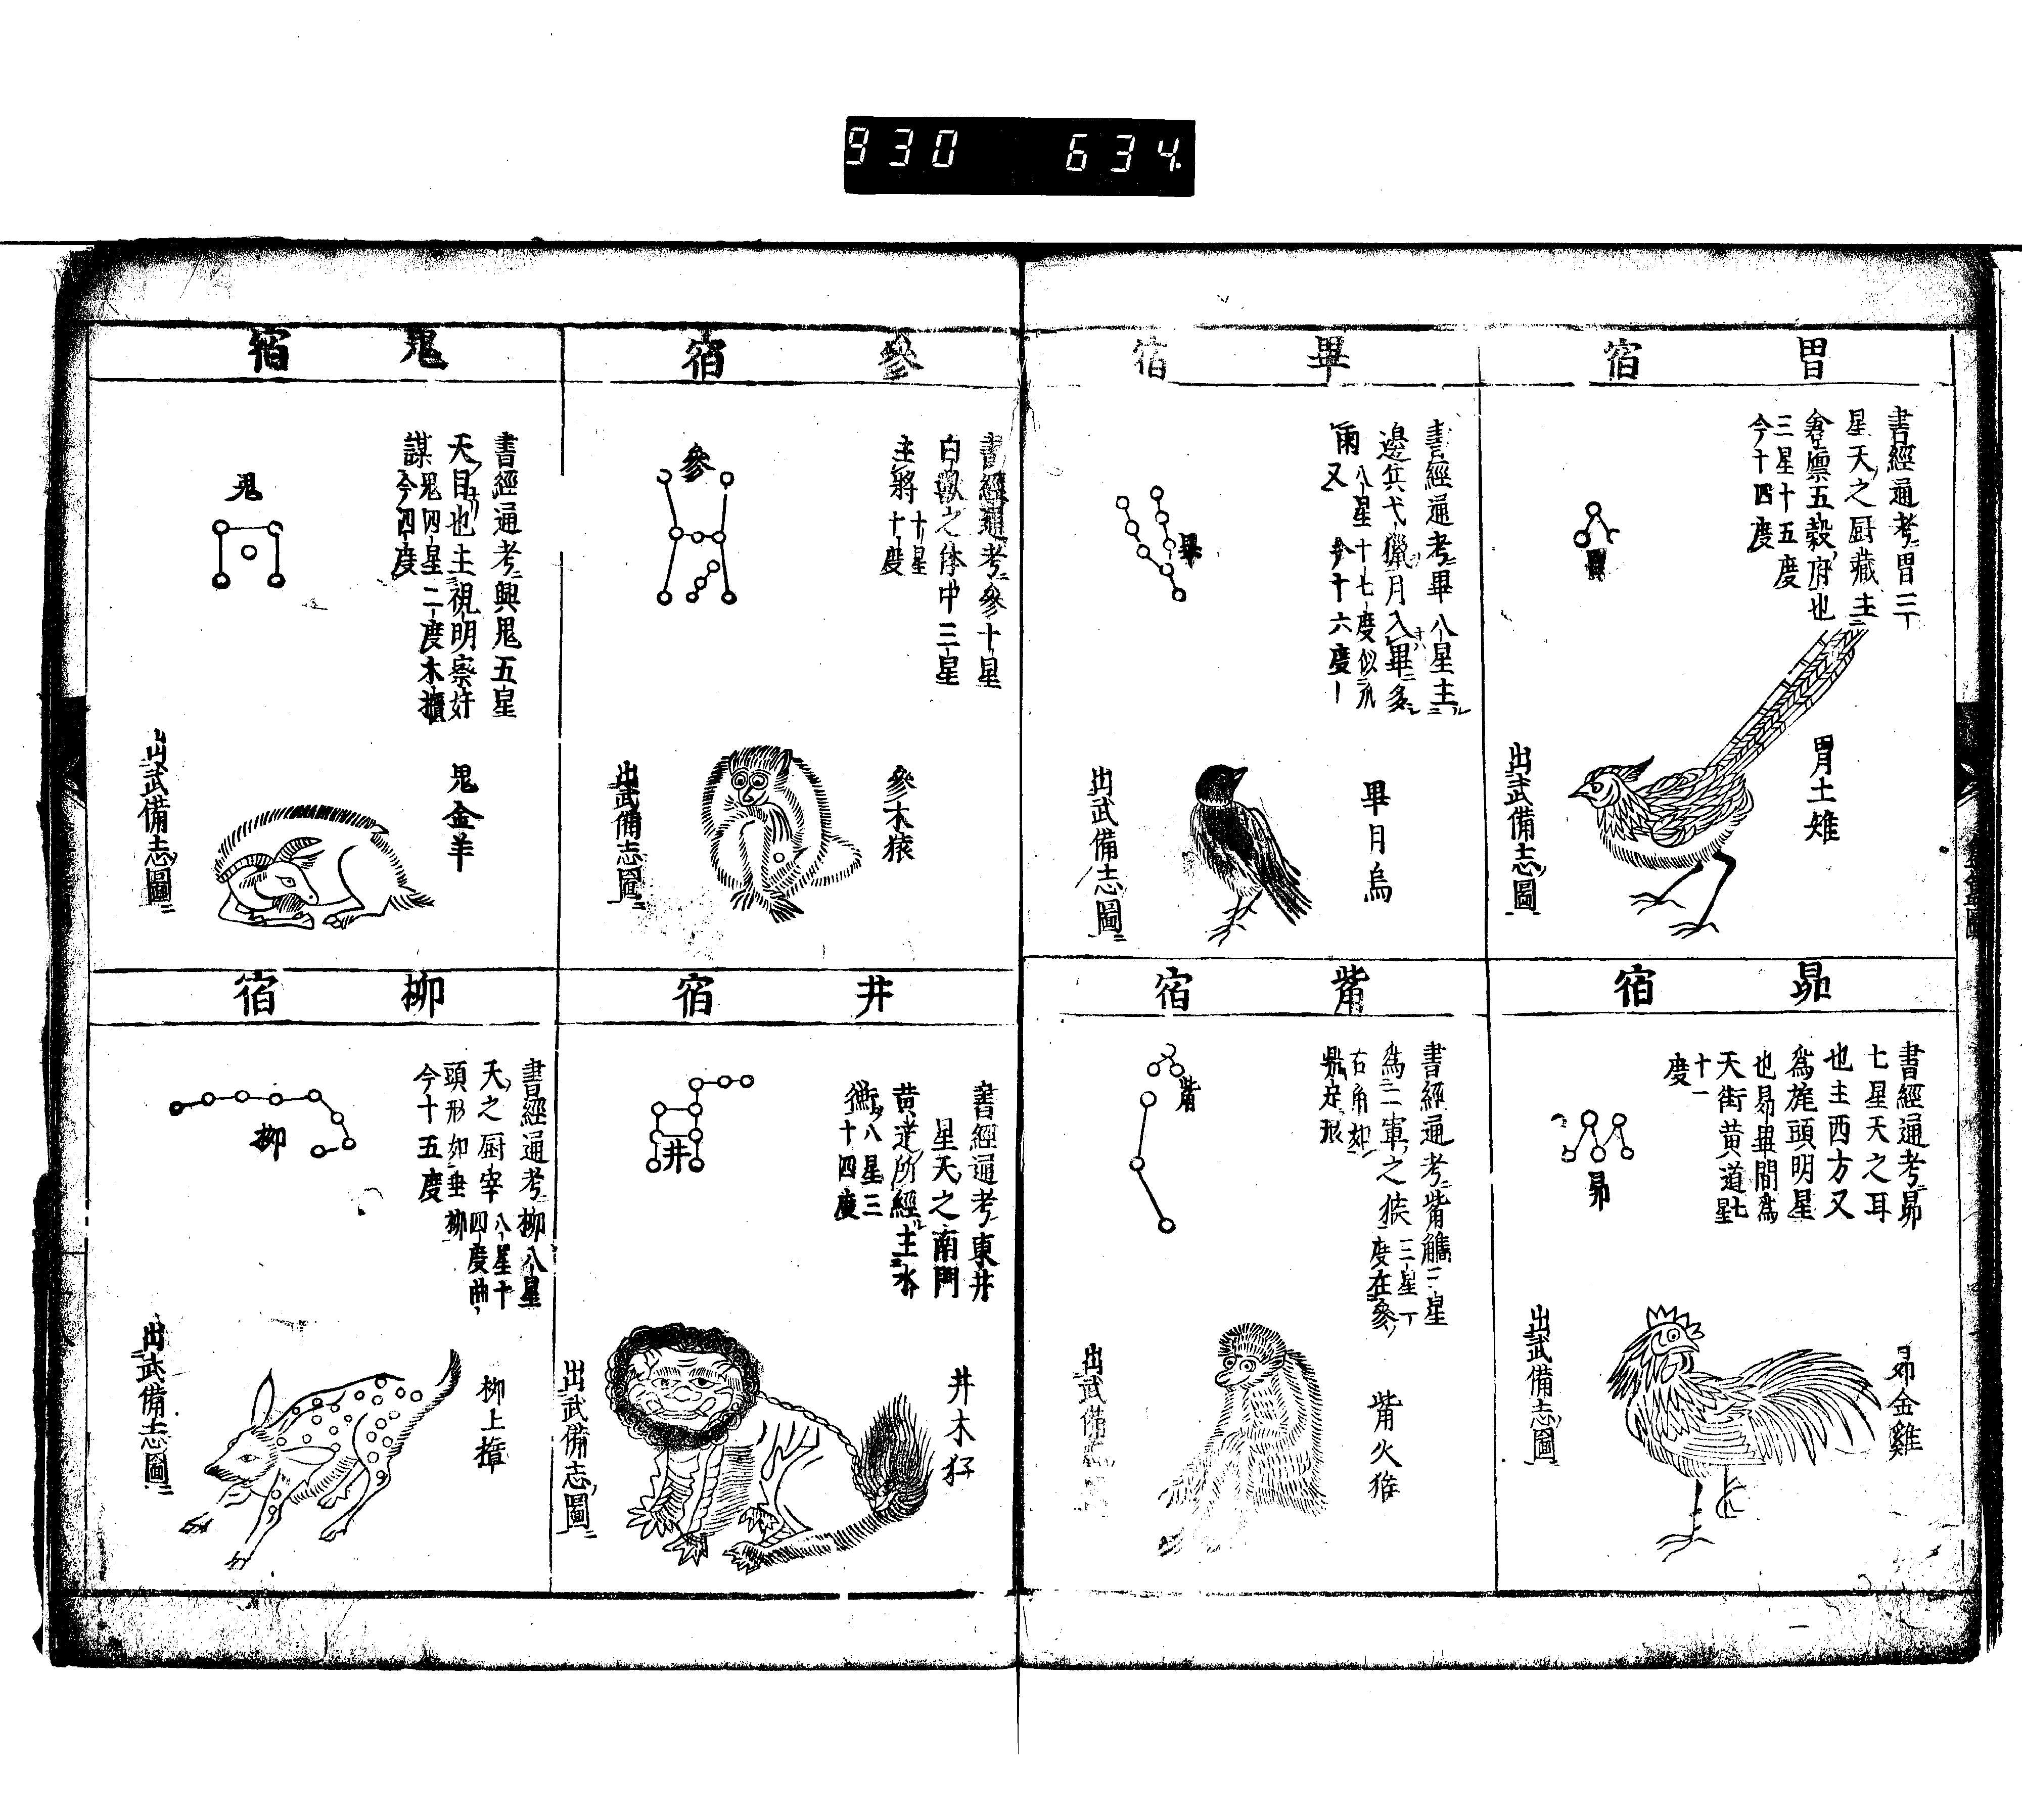 930 634
胃宿
書經通考ニ胃三
星天之厨藏主
倉廩五穀府也
三星十五度
今十四度
胃
胃土雉
出武備志圖
昴宿
書經通考ニ昴
七星天之耳
也主西方又
為旄頭明星
也昴畢間為
天街黄道星七
十一
度
昴
昴金雞
出武備志圖
畢宿
書經通考ニ畢八星主
邊兵弋獵月入畢多
雨又
八星十七度似爪
今十六度
畢
畢月烏
出武備志圖
觜宿
書經通考ニ觜觿三星
為三軍之候
三星一
度在參
右角如
鼎足形
觜
觜火猴
出武備志
參宿
書經通考ニ參十星
白獸之体中三星
主將
十星
十度
參
參木猿
出武備志圖
井宿
書經通考ニ東井
星天之南門
黄道所經主水
衡
八星三
十四度
井
井木犴
出武備志圖
鬼宿
書經通考ニ輿鬼五星
天目也主視明察奸
謀
鬼四星二度木櫃
今四度
鬼
鬼金羊
出武備志圖
柳宿
書經通考ニ柳八星
天之厨宰
八星十
四度曲
頭形如垂柳
今十五度
柳
柳土獐
出武備志圖